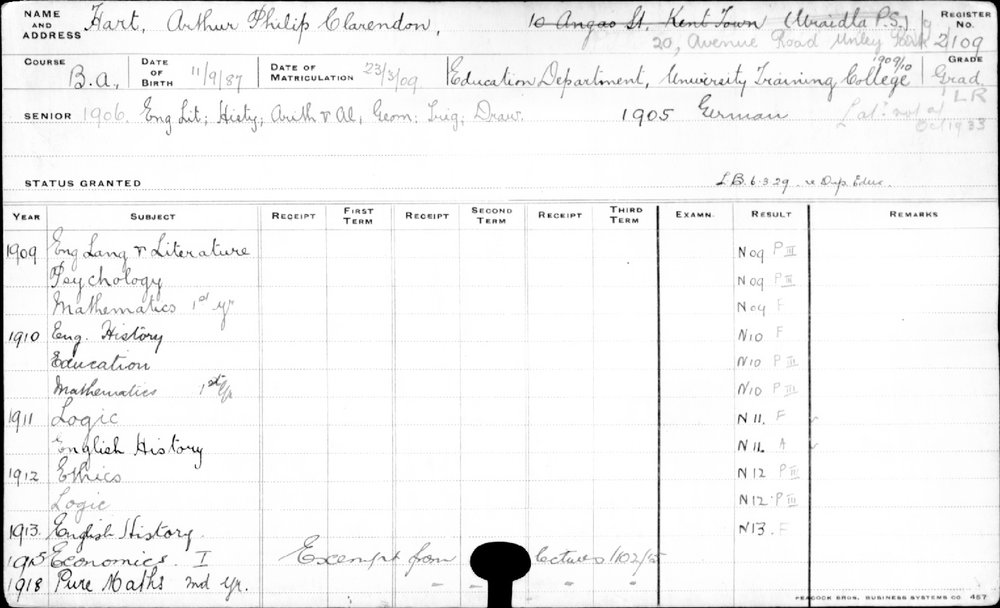 NAME AND ADDRESS Hart, Arthur Philip Clarendon, 10 Angas St. Kent Town (Uraidla P.S.) REGISTER No.
20, Avenue Road Unley Park 2109
COURSE B.A., DATE OF BIRTH 11/9/87 DATE OF MATRICULATION 23/3/09 Education Department, University Training College 1909/10 GRADE Grad.
LR
SENIOR 1906. Eng Lit; Histy; Arith & Al; Geom; Trig; Draw. 1905 German Lat: not at
Oct 1933
STATUS GRANTED L.B. 6.3.29 re Dup. Educ.
YEAR SUBJECT RECEIPT FIRST TERM RECEIPT SECOND TERM RECEIPT THIRD TERM EXAMN. RESULT REMARKS
1909 Eng Lang & Literature N 09 P III
Psychology N 09 P III
Mathematics 1st yr N 09 F
1910 Eng. History N10 F
Education N10 P III
Mathematics 1st yr N10 P III
1911 Logic N 11. F
English History N 11. A
1912 Ethics N 12 P II
Logic N 12. P III
1913. English History. N 13. F
1915 Economics. I Exempt from lectures 1102/15
1918 Pure Maths 2nd yr. " " "
PEACOCK BROS. BUSINESS SYSTEMS CO 457